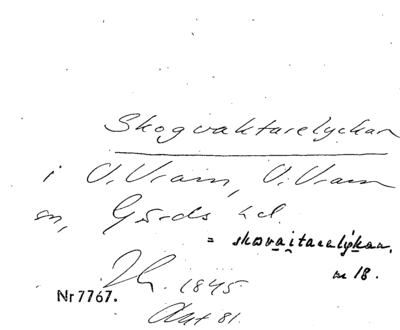 Skogvaktarelyckan
i V. Vram, V. Vram
sn, Gärds hd.
= skovaitarelykan.
m 18.
1845.
Nr 7767.
Akt 81.